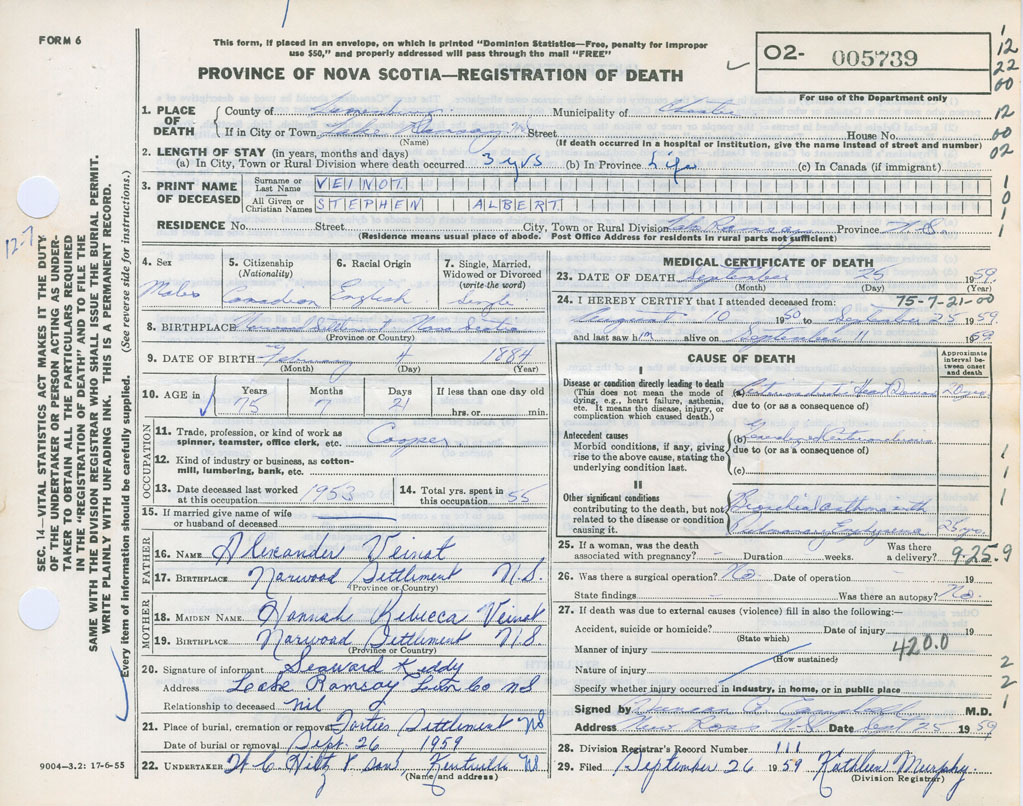 FORM 6
This form, if placed in an envelope, on which is printed "Dominion Statistics—Free, penalty for improper
use $50," and properly addressed will pass through the mail "FREE"
PROVINCE OF NOVA SCOTIA—REGISTRATION OF DEATH
O2- 005739
For use of the Department only
12
22
00
12
00
02
1. PLACE OF DEATH
County of Lunenburg Municipality of Chester
If in City or Town Lake Ramsay NS Street House No.
(Name) (If death occurred in a hospital or institution, give the name instead of street and number)
2. LENGTH OF STAY (in years, months and days)
(a) In City, Town or Rural Division where death occurred 3 yrs (b) In Province Life (c) In Canada (if immigrant)
3. PRINT NAME OF DECEASED
Surname or Last Name VEINOT
All Given or Christian Names STEPHEN ALBERT
RESIDENCE No. Street City, Town or Rural Division Lake Ramsay Province N.S.
(Residence means usual place of abode. Post Office Address for residents in rural parts not sufficient)
1
0
1
1
SEC. 14—VITAL STATISTICS ACT MAKES IT THE DUTY
OF THE UNDERTAKER OR PERSON ACTING AS UNDER-
TAKER TO OBTAIN ALL THE PARTICULARS REQUIRED
IN THE "REGISTRATION OF DEATH" AND TO FILE THE
SAME WITH THE DIVISION REGISTRAR WHO SHALL ISSUE THE BURIAL PERMIT.
WRITE PLAINLY WITH UNFADING INK. THIS IS A PERMANENT RECORD.
Every item of information should be carefully supplied. (See reverse side for instructions.)
12-7
4. Sex
Male
5. Citizenship
(Nationality)
Canadian
6. Racial Origin
English
7. Single, Married,
Widowed or Divorced
(write the word)
Single
8. BIRTHPLACE Norwood Settlement Nova Scotia
(Province or Country)
9. DATE OF BIRTH February 4 1884
(Month) (Day) (Year)
10. AGE in Years Months Days If less than one day old
75 7 21 hrs. or min.
OCCUPATION
11. Trade, profession, or kind of work as
spinner, teamster, office clerk, etc. Cooper
12. Kind of industry or business, as cotton-
mill, lumbering, bank, etc.
13. Date deceased last worked
at this occupation 1953
14. Total yrs. spent in
this occupation 55
15. If married give name of wife
or husband of deceased
FATHER
16. NAME Alexander Veinot
17. BIRTHPLACE Norwood Settlement N.S.
(Province or Country)
MOTHER
18. MAIDEN NAME Hannah Rebecca Veinot
19. BIRTHPLACE Norwood Settlement N.S.
(Province or Country)
20. Signature of informant Seaward Keddy
Address Lake Ramsay Lun Co NS
Relationship to deceased nil
21. Place of burial, cremation or removal Forties Settlement NS
Date of burial or removal Sept. 26 1959
22. UNDERTAKER H C Hiltz & Son Kentville NS
(Name and address)
9004—3.2: 17-6-55
MEDICAL CERTIFICATE OF DEATH
23. DATE OF DEATH September 25 1959
(Month) (Day) (Year)
24. I HEREBY CERTIFY that I attended deceased from: 75-7-21-00
August 10 1950 to September 25 1959
and last saw him alive on September 11 1959
CAUSE OF DEATH
Approximate
interval between
onset
and death
I
Disease or condition directly leading to death
(This does not mean the mode of
dying, e.g., heart failure, asthenia,
etc. It means the disease, injury, or
complication which caused death.)
(a) Arteriosclerotic Heart Disease
due to (or as a consequence of)
Antecedent causes
Morbid conditions, if any, giving
rise to the above cause, stating the
underlying condition last.
(b) General Arteriosclerosis
due to (or as a consequence of)
(c)
II
Other significant conditions
contributing to the death, but not
related to the disease or condition
causing it.
Bronchial asthma with
Pulmonary Emphysema 25 yrs
1
1
1
25. If a woman, was the death
associated with pregnancy? Duration weeks. Was there
a delivery? 9-25-9
26. Was there a surgical operation? No Date of operation 19
State findings Was there an autopsy? No
27. If death was due to external causes (violence) fill in also the following:—
Accident, suicide or homicide? Date of injury 19
(State which)
Manner of injury 420.0
(How sustained)
Nature of injury
Specify whether injury occurred in industry, in home, or in public place
2
2
1
Signed by Duncan R Campbell M.D.
Address New Ross N.S. Date Sept 25 1959
28. Division Registrar's Record Number 111
29. Filed September 26 1959 Kathleen Murphy
(Division Registrar)